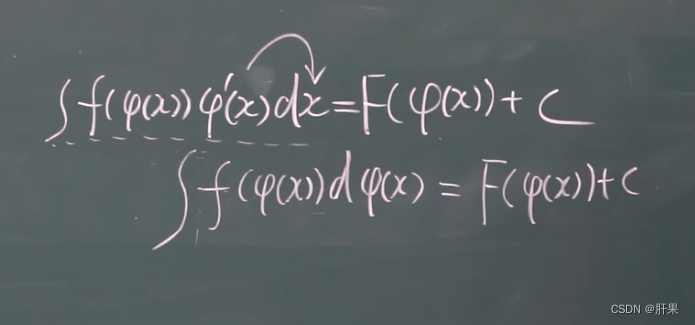 ∫f(φ(x))φ'(x)dx=F(φ(x))+C
∫f(φ(x))dφ(x)=F(φ(x))+C
CSDN @肝果